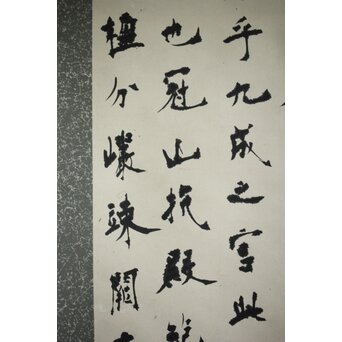 乎九成之宮此
也冠山抗殿絕
楹分巖竦闕